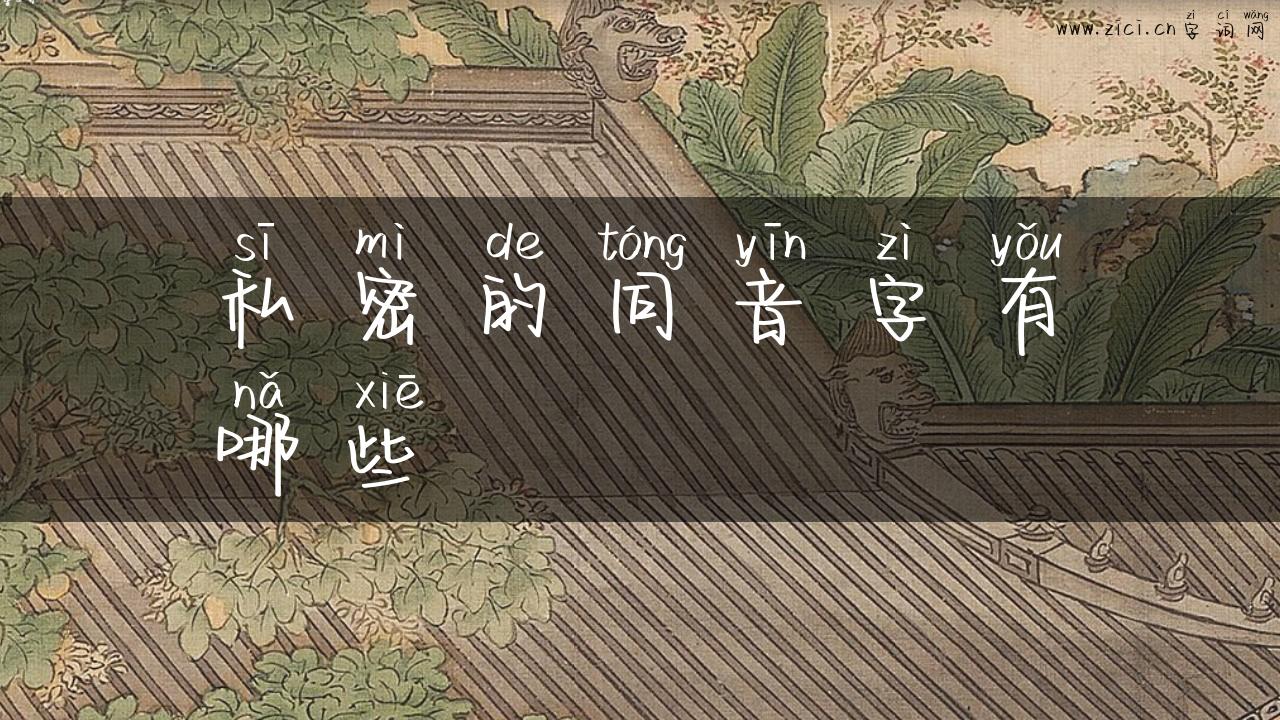 zì cí wǎng
www.zici.cn 字词网
sī mì de tóng yīn zì yǒu
私密的同音字有
nǎ xiē
哪些